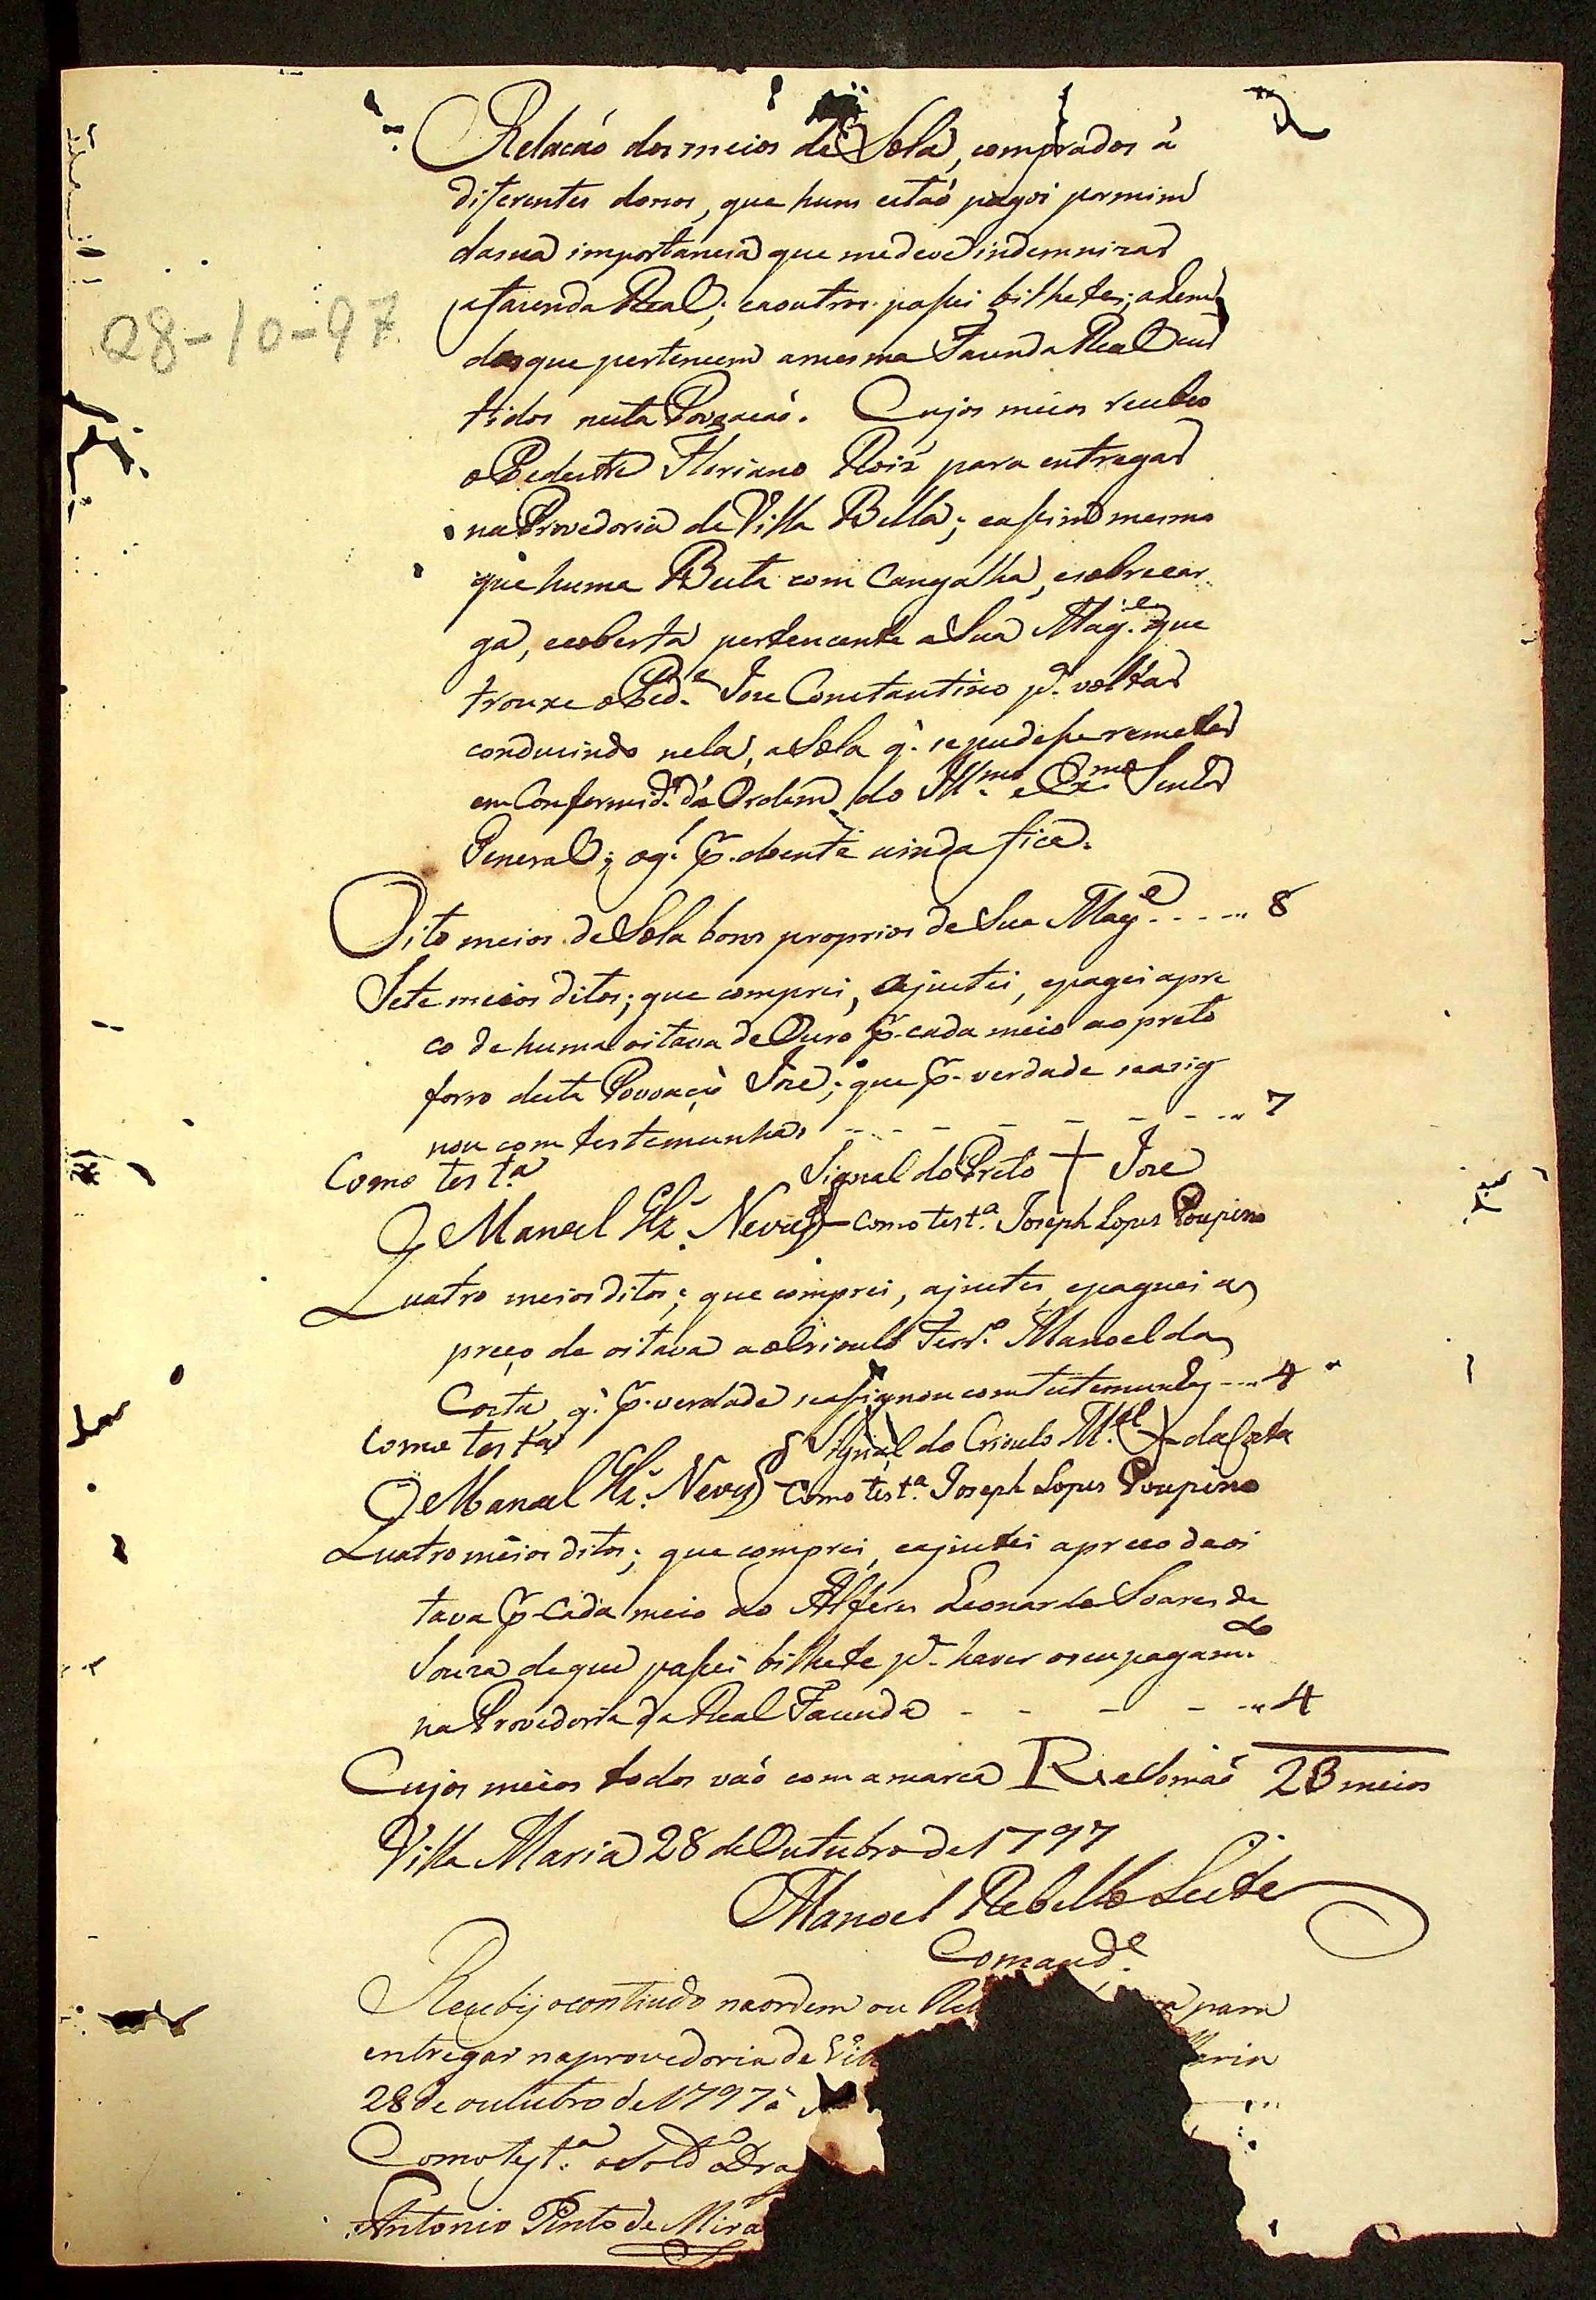 Relacaõ dos meios de Sola, comprados á
diferentes donos, que huns estaõ pagos por mim
da sua importancia que me deve indemnizar
a fazenda Real; e a outros passei bilhetes; alem
dos que pertencem a mesma Fazenda Real cur
tidos nesta Povoacaõ. Cujos meios recebeo
o Pedestre Floriano Roiz para entregar
na Provedoria de Villa Bella; e assim mesmo
que huma Besta com Cangalha, e sobrecar
ga, e coberta pertencente a Sua Mag.e que
trouxe o Ped.e Joze Constantino p.a voltar
conduzindo nela, a Sola q.' se pudesse remeter
em Conformid.e da Ordem do Ill.mo e Ex.mo Senhor
General; o q.' p.r doente ainda fica.
Oito meios de Sola bons proprios de Sua Mag.e - - - - 8
Sete meios ditos; que comprei, ajustei, e paguei a pre
co de huma oitava de Ouro p.r cada meio ao preto
forro desta Povoacaõ Joze; que p.r verdade se asig
nou com testemunhas - - - - - - - 7
Como test.a Signal do Preto + Joze
Manoel Glz. Neves Como test.a Joseph Lopes Poupino
Quatro meios ditos; que comprei, ajustei, e paguei a
preço de oitava ao Crioulo Manoel da
Costa, q.' p.r verdade se assignou com testemunhas - - - 4
Como test.a Signal do Crioulo M.el + da Costa
Manoel Glz. Neves Como test.a Joseph Lopes Poupino
Quatro meios ditos; que comprei, e ajustei a preco de oi
tava p.r Cada meio ao Alferes Leonardo Soares de
Souza de que passei bilhete p.a haver o seu pagam.to
na Provedoria da Real Fazenda - - - - - 4
Cujos meios todos vaõ com a marca R e somaõ 23 meios
Villa Maria 28 de Outubro de 1797
Manoel Rebello Leite
Comand.e
28-10-97
Recebij o contiudo na ordem ou para
entregar na provedoria de
28 de outubro de 1797 a
Como test.a o Sold.o
Antonio Pinto de